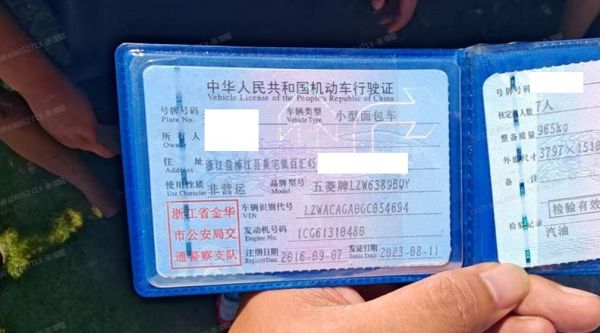 中华人民共和国机动车行驶证
Vehicle License of the People's Republic of China
号牌号码
Plate No.
车辆类型 小型面包车
Vehicle Type
所有人
Owner
住址 浙江省浦江县
Address
使用性质 非营运
Use Character
品牌型号 五菱牌LZW6389BQY
Model
浙江省金华
市公安局交
通警察支队
车辆识别代号
VIN
LZWACAGA0GC054694
发动机号码
Engine No.
1CG61310480
注册日期 2016-09-07
Register Date
发证日期 2023-08-11
Issue Date
号牌号码
核定载人数 7人
整备质量 965kg
外廓尺寸 3797×1510
检验有效
检验记录
汽油